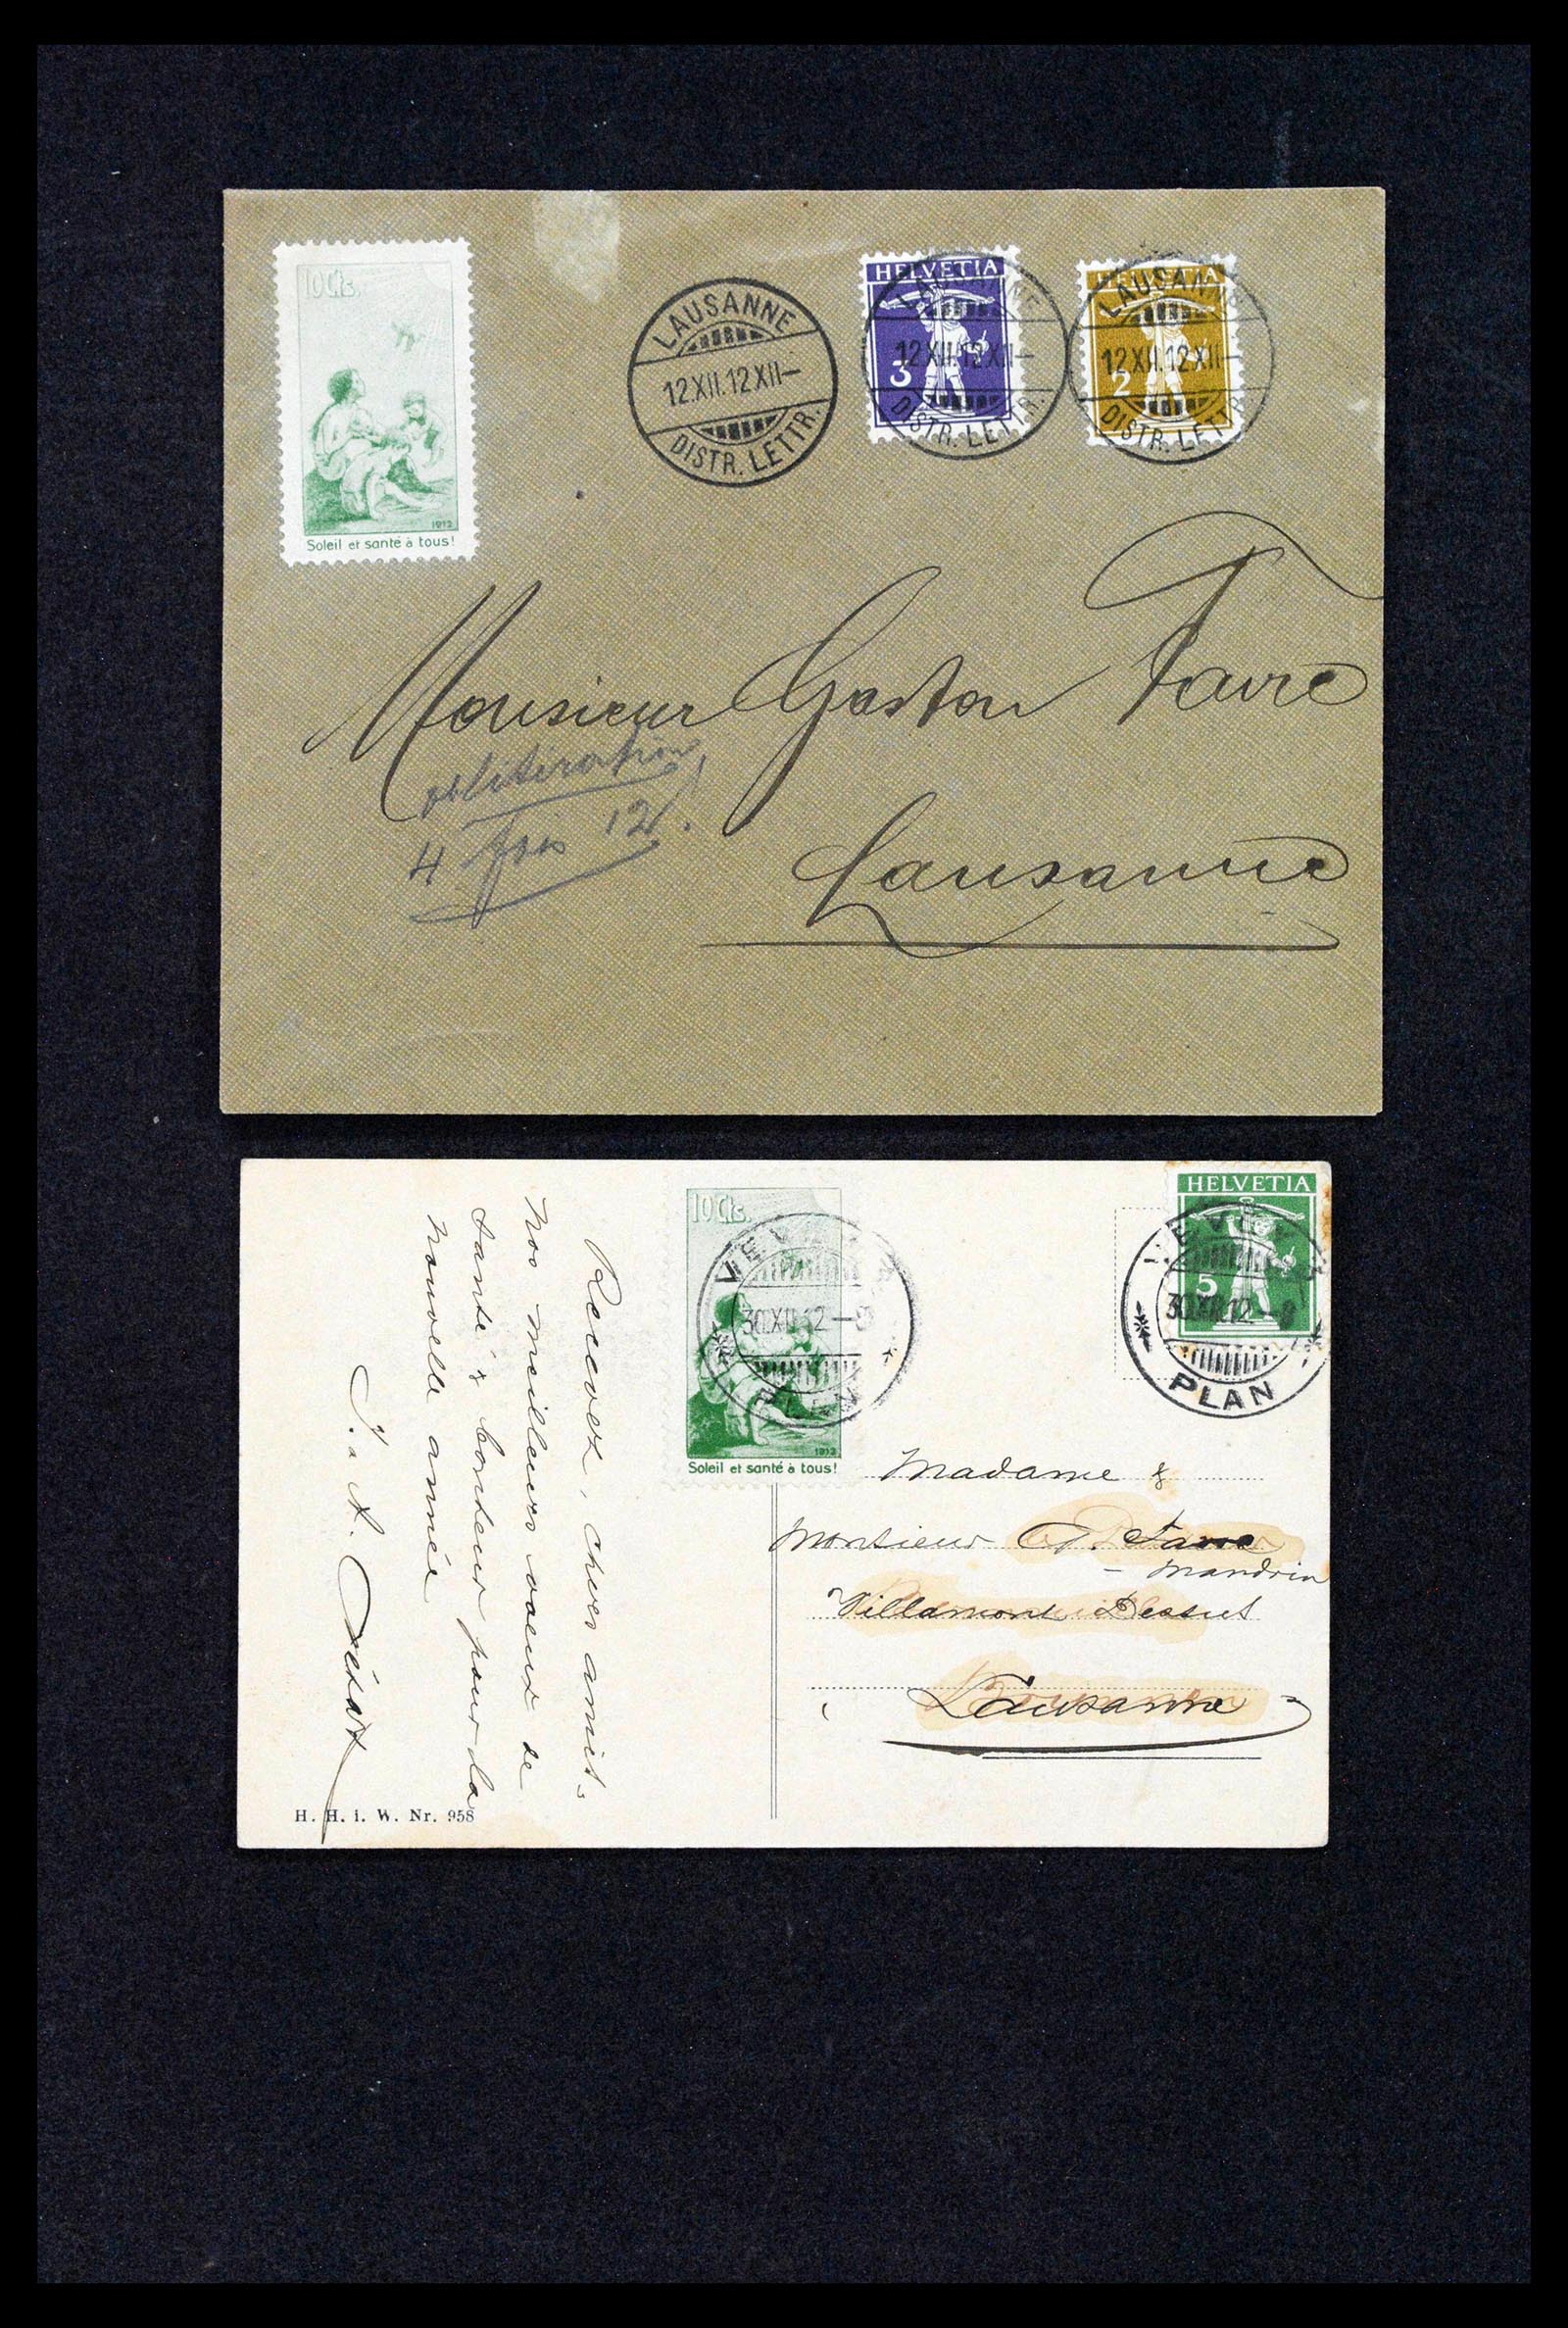 10 Cts.
1912
Soleil et santé à tous!
LAUSANNE
12.XII.12 XII–
DISTR. LETTR.
HELVETIA
3
LAUSANNE
12 XII.12 XII–
DISTR. LETTR.
HELVETIA
2
LAUSANNE
12 XII.12 XII–
DISTR. LETTR.
Monsieur Gaston Favre
oblitération
4 fois 12!
Lausanne
10 Cts.
1912
Soleil et santé à tous!
VEVEY
30.XII.12–8
PLAN
HELVETIA
5
VEVEY
30.XII.12–8
PLAN
Recevez, chers amis,
nos meilleurs voeux de
santé & bonheur pour la
nouvelle année
H. H. i. W. Nr. 958
Madame &
Monsieur G. Favre
– Mandrin
Villamont Dessus
Lausanne